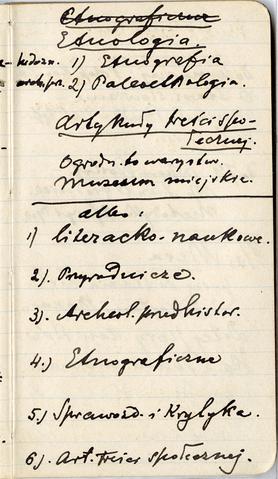 Etnograficzne
Etnologia.
ludozn. 1) Etnografia
arch. pr. 2) Paleoetnologia.
Artykuły treści spo-
łecznej.
Ogrodn. towarzystw.
Muzeum miejskie.
albo:
1) literacko-naukowe.
2). Przyrodnicze.
3). Archeol. predhistor.
4.) Etnograficzne
5.) Sprawozd. i Krytyka.
6). Art. treści społecznej.